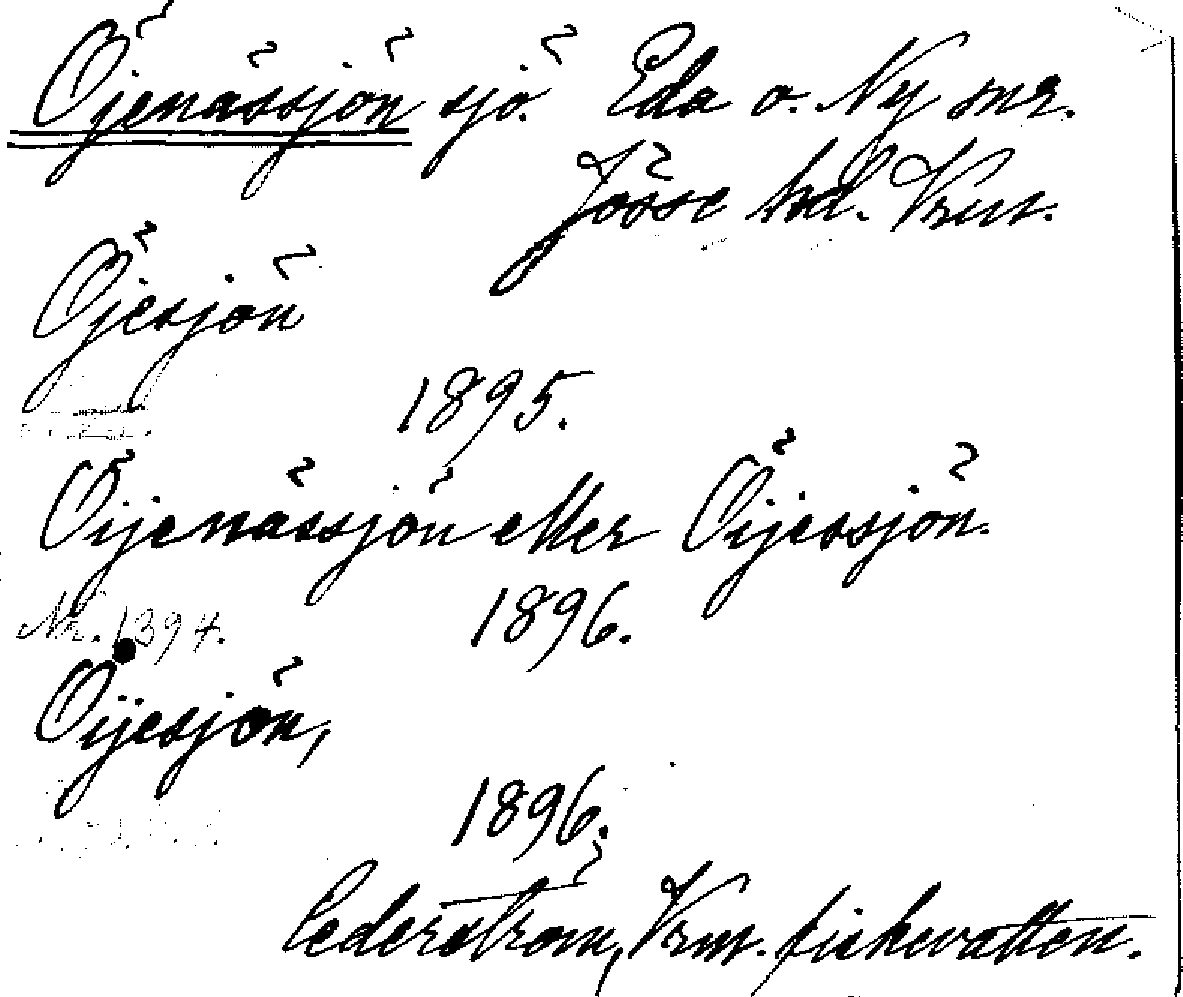 Öjenässjön sjö. Eda o. Ny snr.
Jösse hd. Vrml.
Öjesjön
1895.
Öijenässjön eller Öijessjön.
1896.
Nr. 1394.
Öijesjön,
1896.
Cederström, Vrm. fiskevatten.